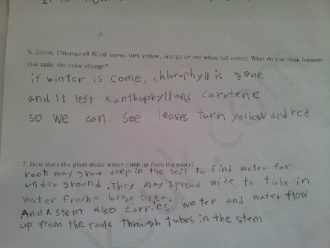 6. Green, Chlorophyll filled leaves turn yellow, orange or red when fall comes. What do you think happens
that make the color change?
if winter is come, chlorophyll is gone
and it left Xanthophyll and carotene
so we can see leaves turn yellow and red
7. How does the plant make water climb up from the roots?
root may grow deep in the soil to find water far
under ground. They may spread wite to tube in
water from a large area.
And a stem also carries water and water flow
up from the roots through tubes in the stem